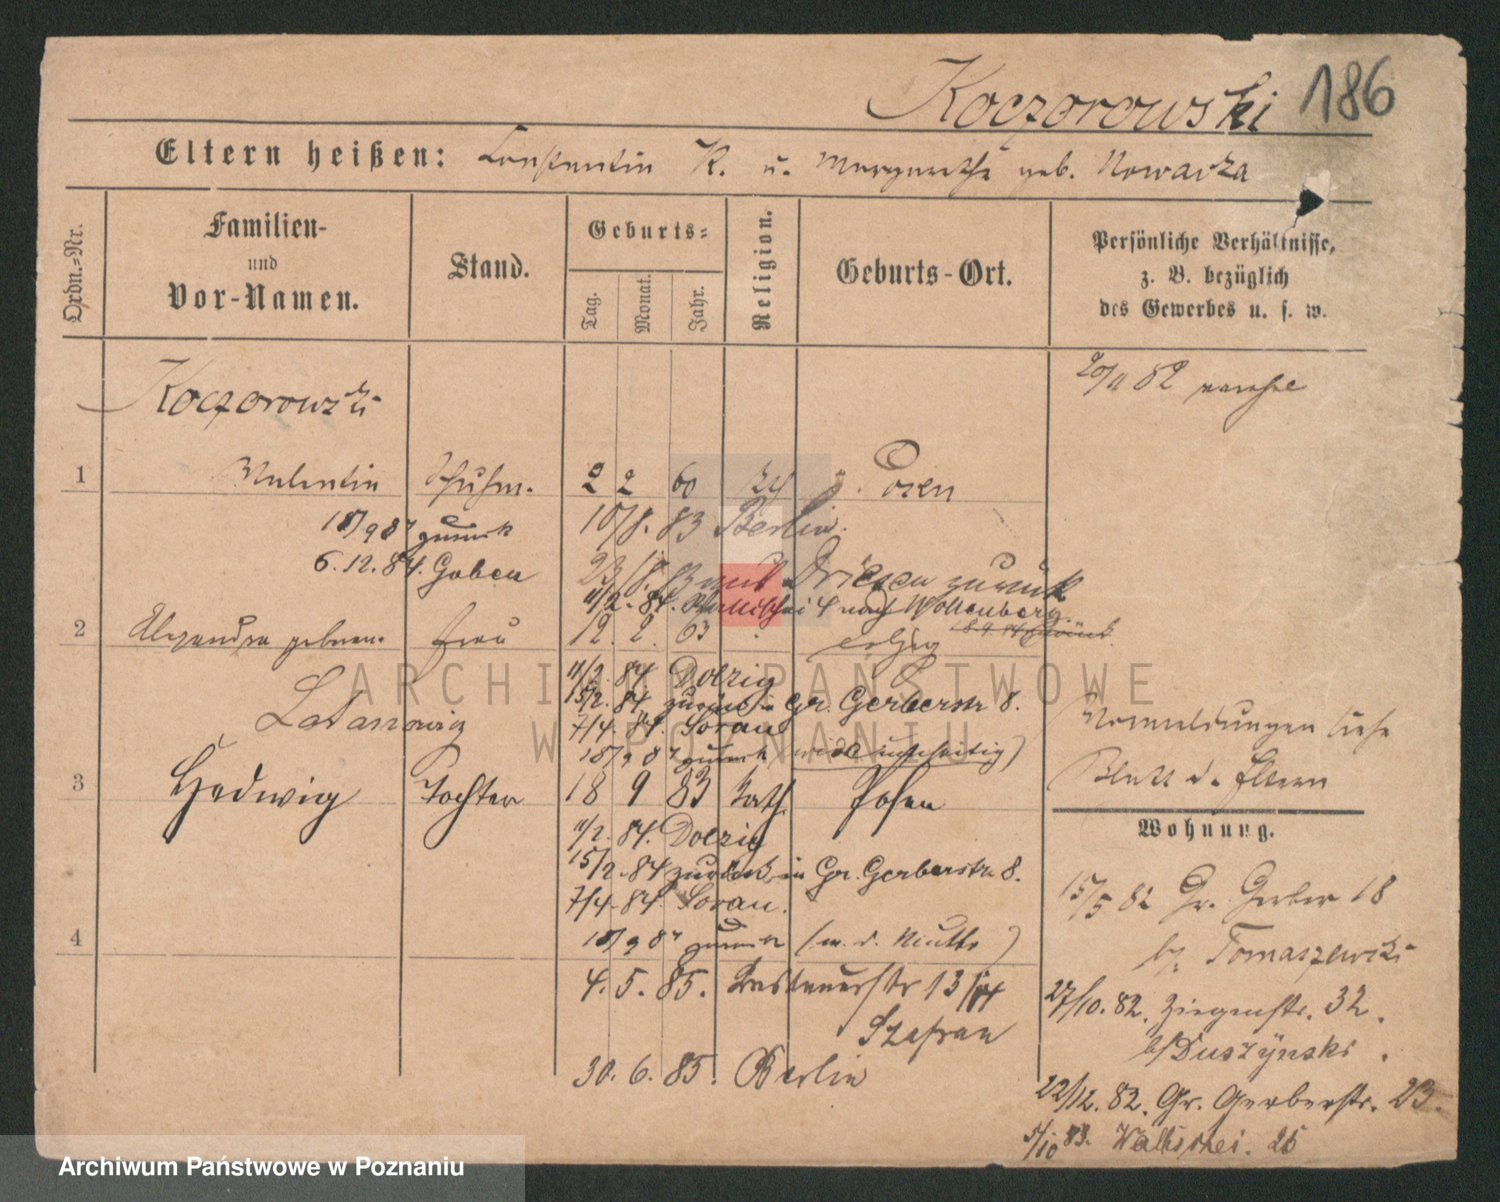 Koczorowski 186
Eltern heißen: Constantin K. u. Margarethe geb. Nowacka
Ordn.=Nr.
Familien-
und
Vor-Namen.
Stand.
Geburts=
Tag.
Monat.
Jahr.
Religion.
Geburts-Ort.
Persönliche Verhältnisse,
z. B. bezüglich
des Gewerbes u. s. w.
20/11 82
Koczorowski
1 Valentin Schuhm. 2 2 60 Posen
18/9 87 zurück 10/8. 83 Berlin.
6.12.84. Guben Driesen zurück
11/2. 84. Wallischei 4 nach Woldenberg
2 Alexandra geboren. Frau 12. 2. 63
11/2. 84 Dolzig
15/2. 84 zurück in Gr. Gerberstr 8.
7/4. 84. Sorau
18/9 87 zurück
3 Hedwig Tochter 18 9 83 kath. Posen
11/2. 84. Dolzig
15/2. 84 zurück in Gr. Gerberstr. 8.
7/4. 84. Sorau.
4 18/9 87 zurück (m. d. Mutter)
4. 5. 85. 13
Szafran
30. 6. 85. Berlin
Anmeldungen siehe
Blatt d. Eltern
Wohnung.
15/5 82 Gr. Gerber 18
b/ Tomaszewski
27/10. 82. Ziegenstr. 32.
b/ Duszynski.
22/12. 82. Gr. Gerberstr. 23.
5/10 83. Wallischei. 26
ARCHIWUM PAŃSTWOWE
W POZNANIU
Archiwum Państwowe w Poznaniu